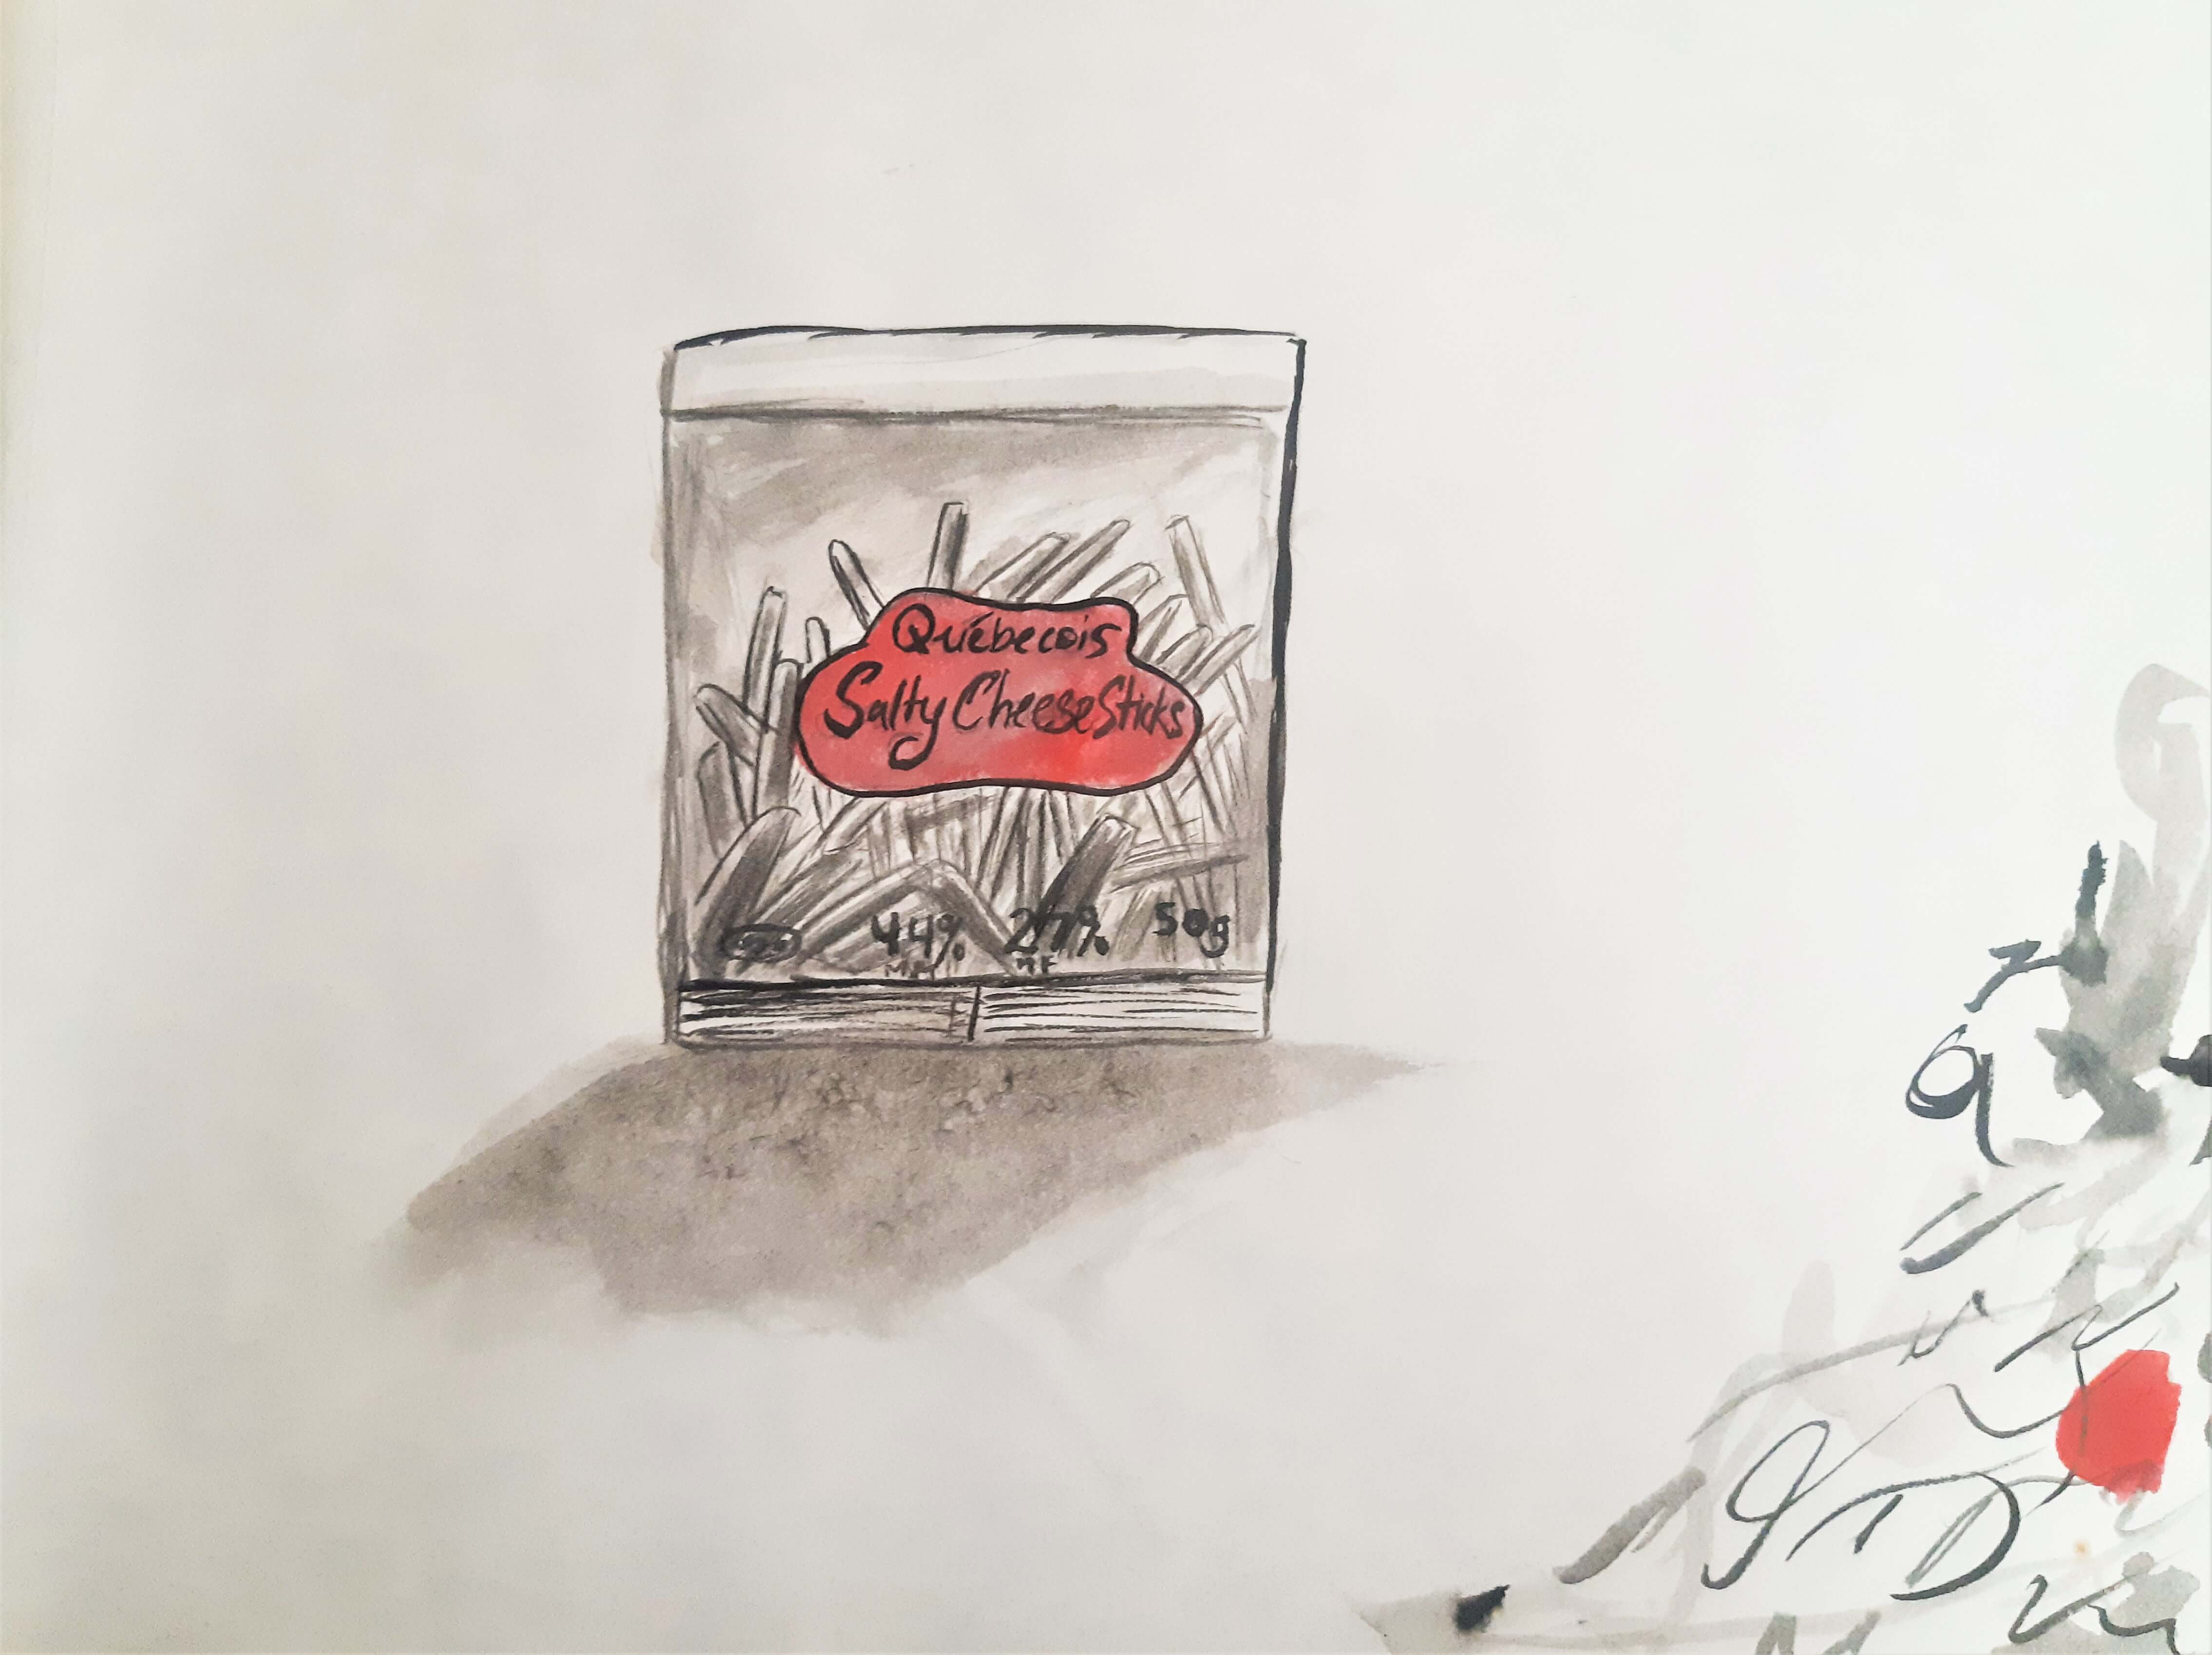 Québecois
Salty Cheese Sticks
44% 27% 50g
MM MF